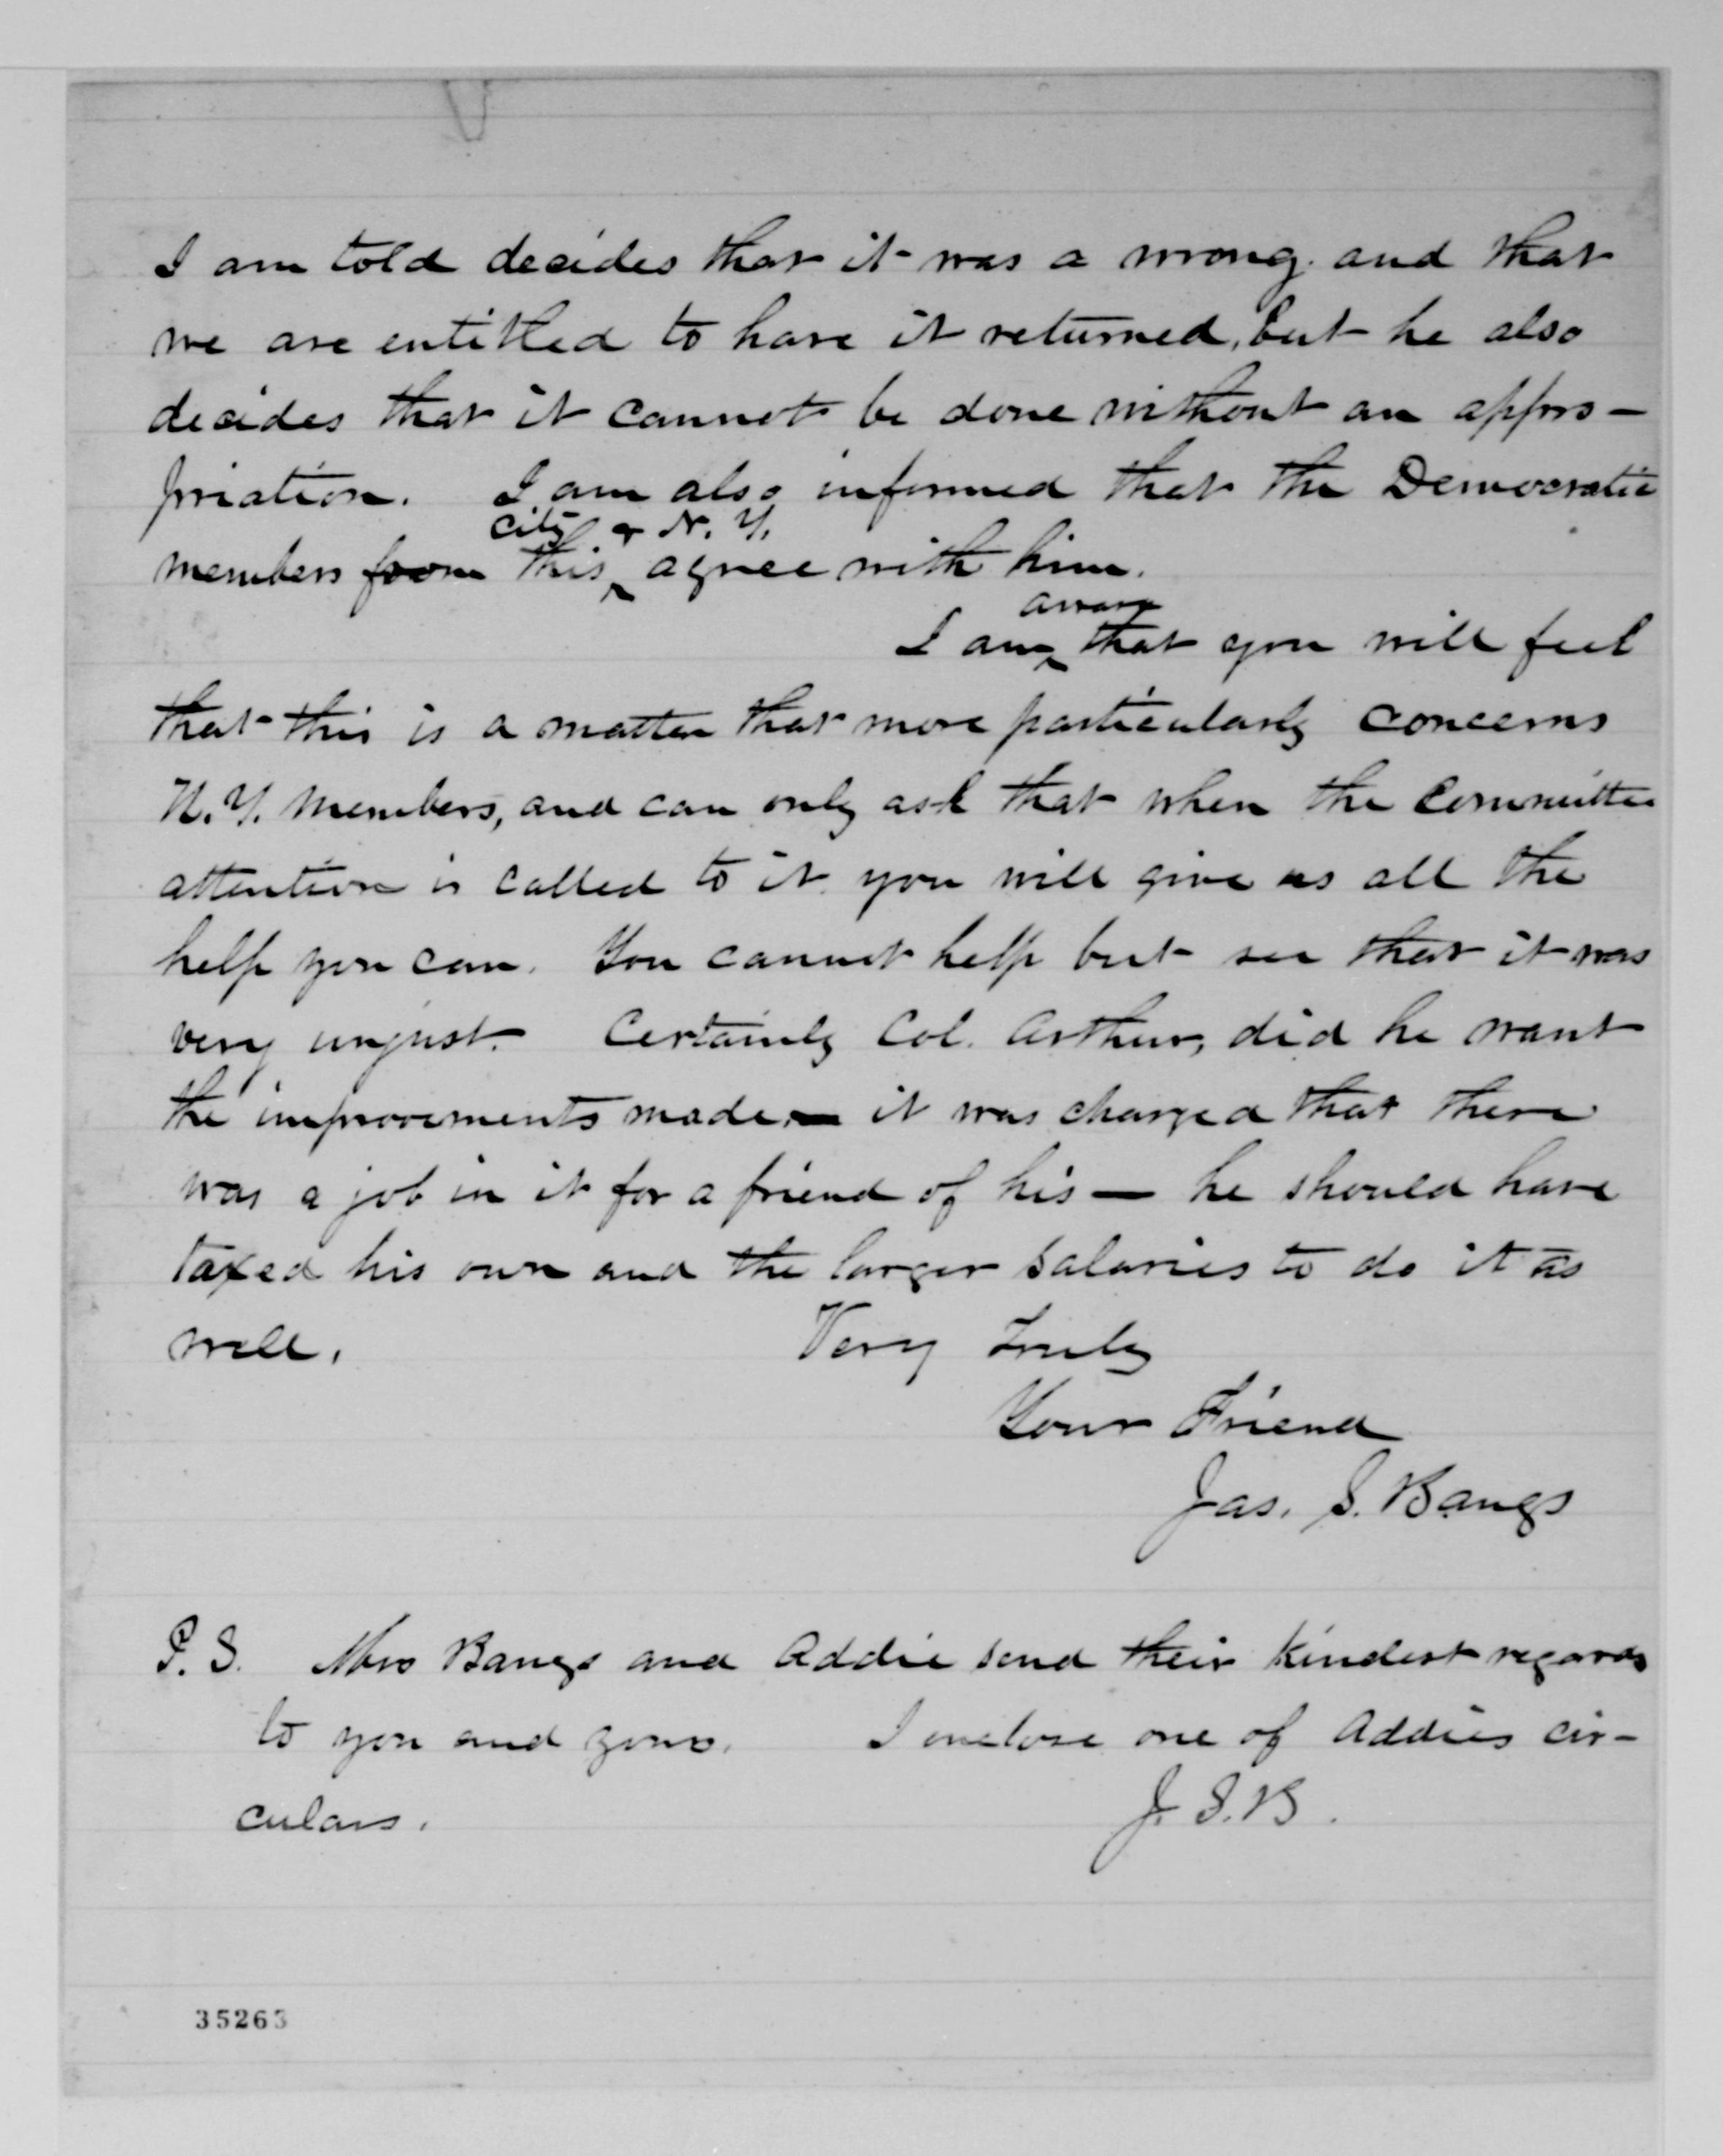 I am told decides that it was a wrong and that
we are entitled to have it returned, but he also
decides that it cannot be done without an appro-
priation. I am also informed that the Democratic
city & N.Y.
members from this agree with him.
aware
I am that you will feel
that this is a matter that more particularly concerns
N.Y. members, and can only ask that when the committee
attention is called to it you will give us all the
help you can. You cannot help but see that it was
very unjust. Certainly Col. Arthur, did he want
the improvements made — it was charged that there
was a job in it for a friend of his — he should have
taxed his own and the larger salaries to do it as
well. Very Truly
Your Friend
Jas. S. Bangs
P.S. Mrs Bangs and Addie send their kindest regards
to you and yours. I enclose one of Addies cir-
culars. J.S.B.
35263